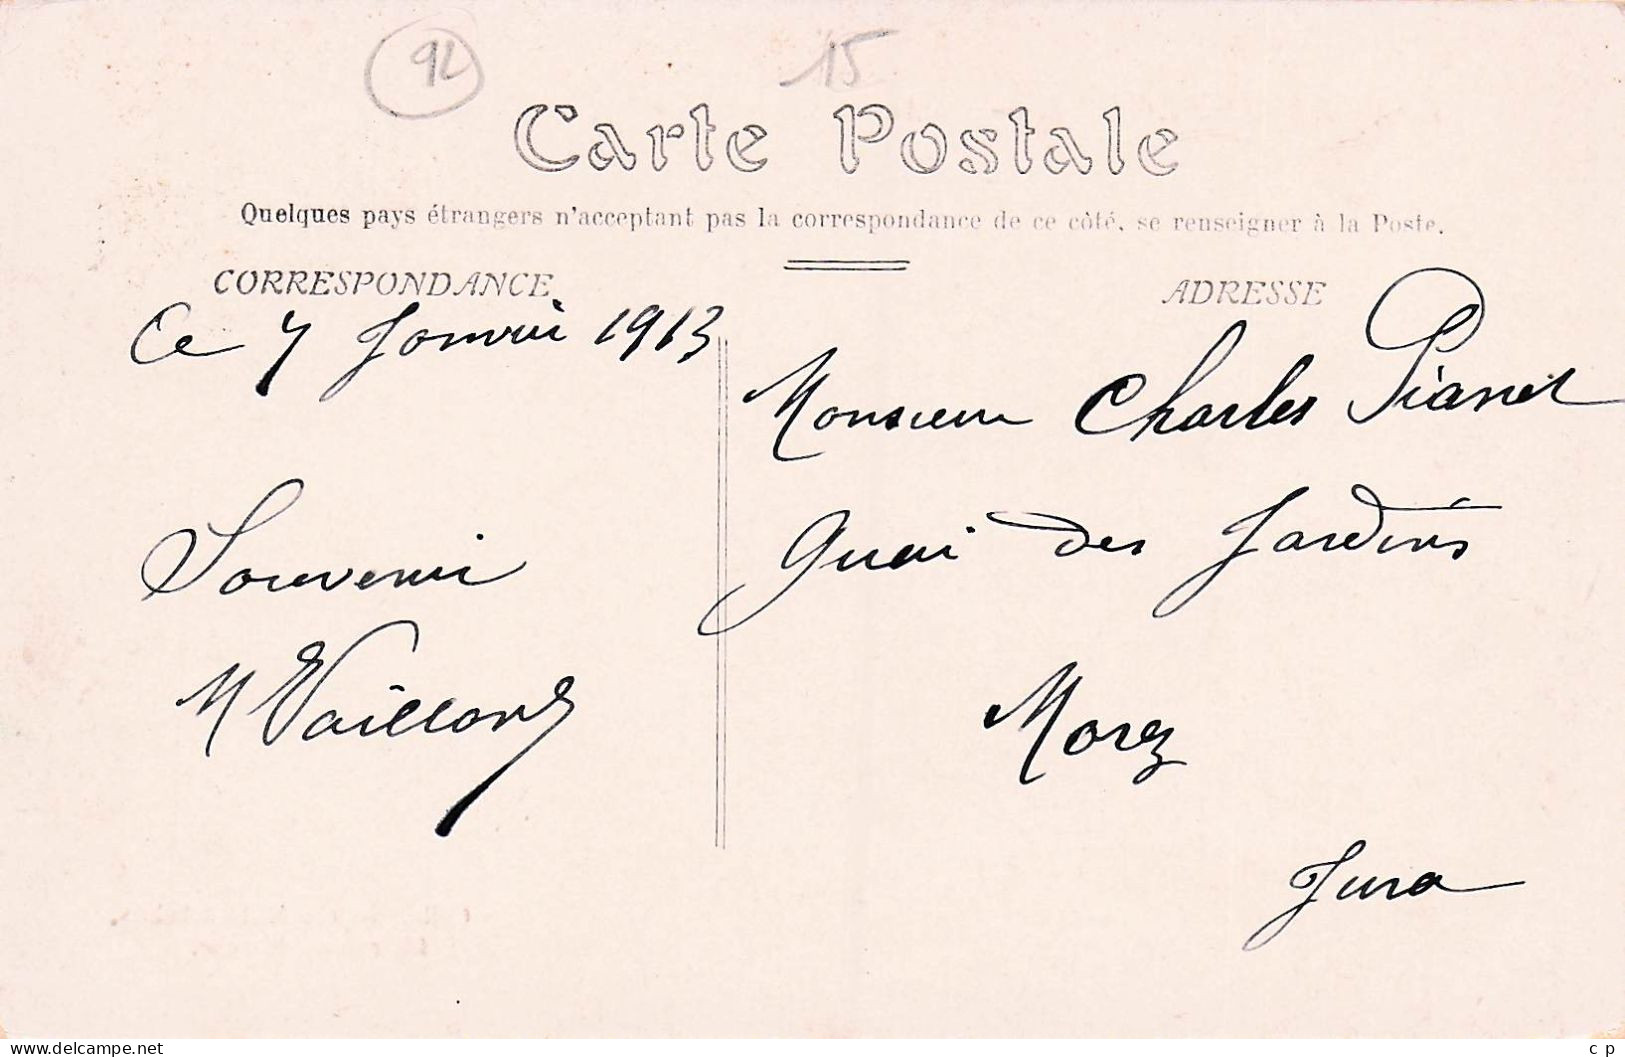 92
15
Carte Postale
Quelques pays étrangers n'acceptant pas la correspondance de ce côté, se renseigner à la Poste.
CORRESPONDANCE
Ce 7 Janvier 1913
Souvenir
M Vaillant
ADRESSE
Monsieur Charles Pianet
Quai des Jardins
Morez
Jura
www.delcampe.net
c p